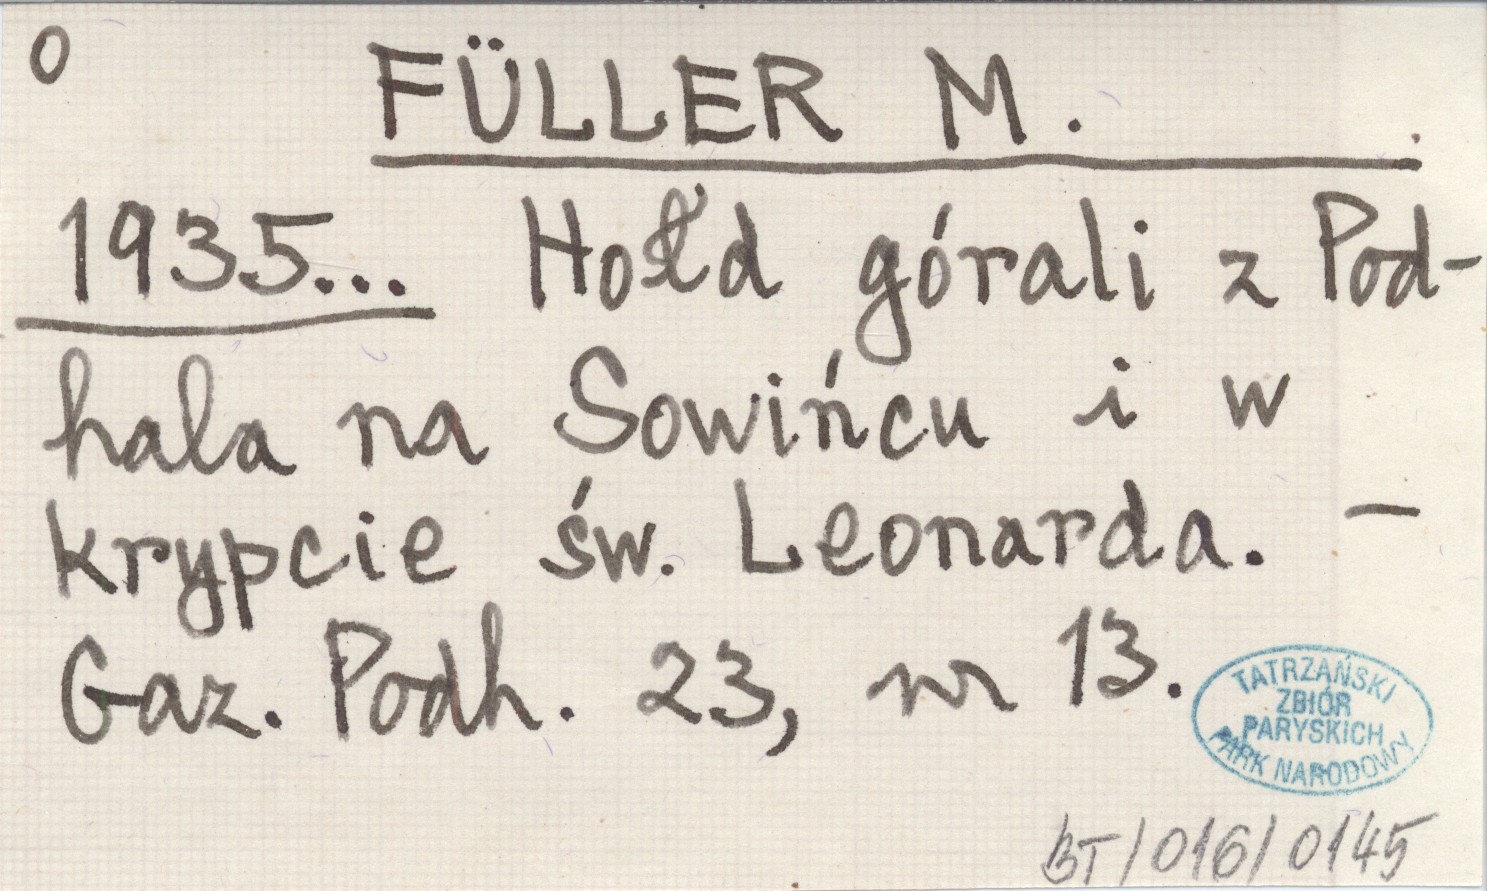 O
FÜLLER M.
1935... Hołd górali z Pod-
hala na Sowińcu i w
krypcie św. Leonarda. –
Gaz. Podh. 23, nr 13.
TATRZAŃSKI
ZBIÓR
PARYSKICH
PARK NARODOWY
BT/016/0145